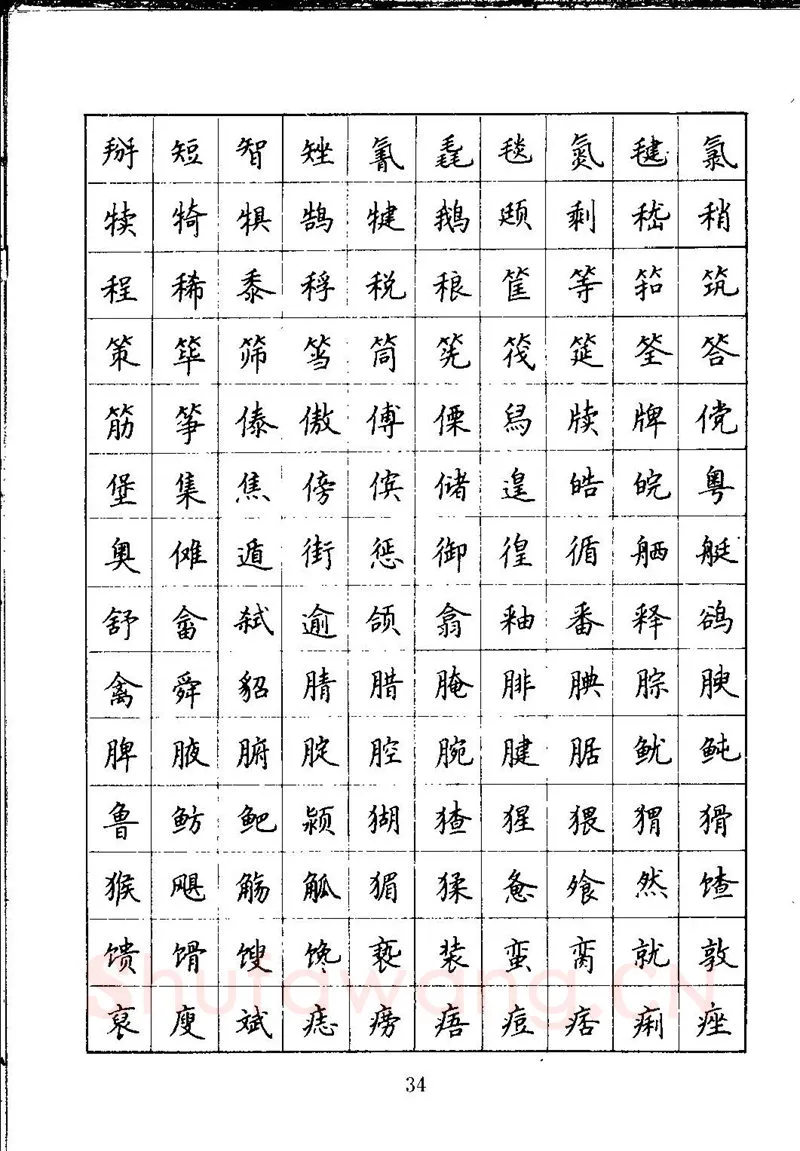 掰短智矬氰毳毯氮毽氯
犊犄犋鹄犍鹅颋剩嵇稍
程稀黍稃税稂筐等筘筑
策筚筛筜筒筅筏筵筌答
筋筝傣傲傅傈舄牍牌傥
堡集焦傍傧储遑皓皖粤
奥傩遁街惩御徨循舾艇
舒畲弑逾颌翕釉番释鹆
禽舜貂腈腊腌腓腆腙腴
脾腋腑腚腔腕腱腒鱿鲀
鲁鲂鲃颍猢猹猩猥猬猾
猴飓觞觚猸猱惫飧然馇
馈馉馊馋亵装蛮脔就敦
裒廋斌痣痨痦痘痞痢痤
Shufawang.CN
34